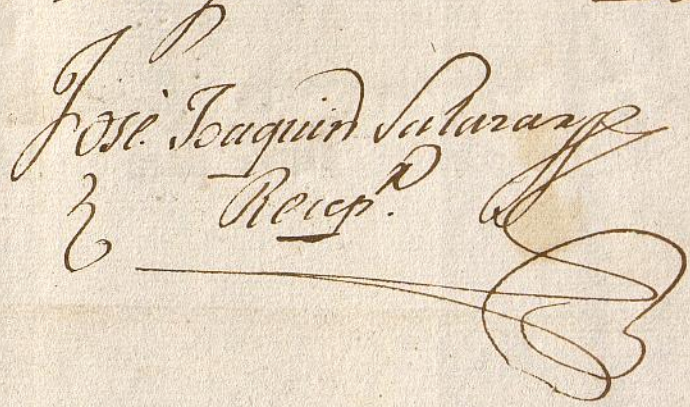 José Joaquin Salazar
Recep.r